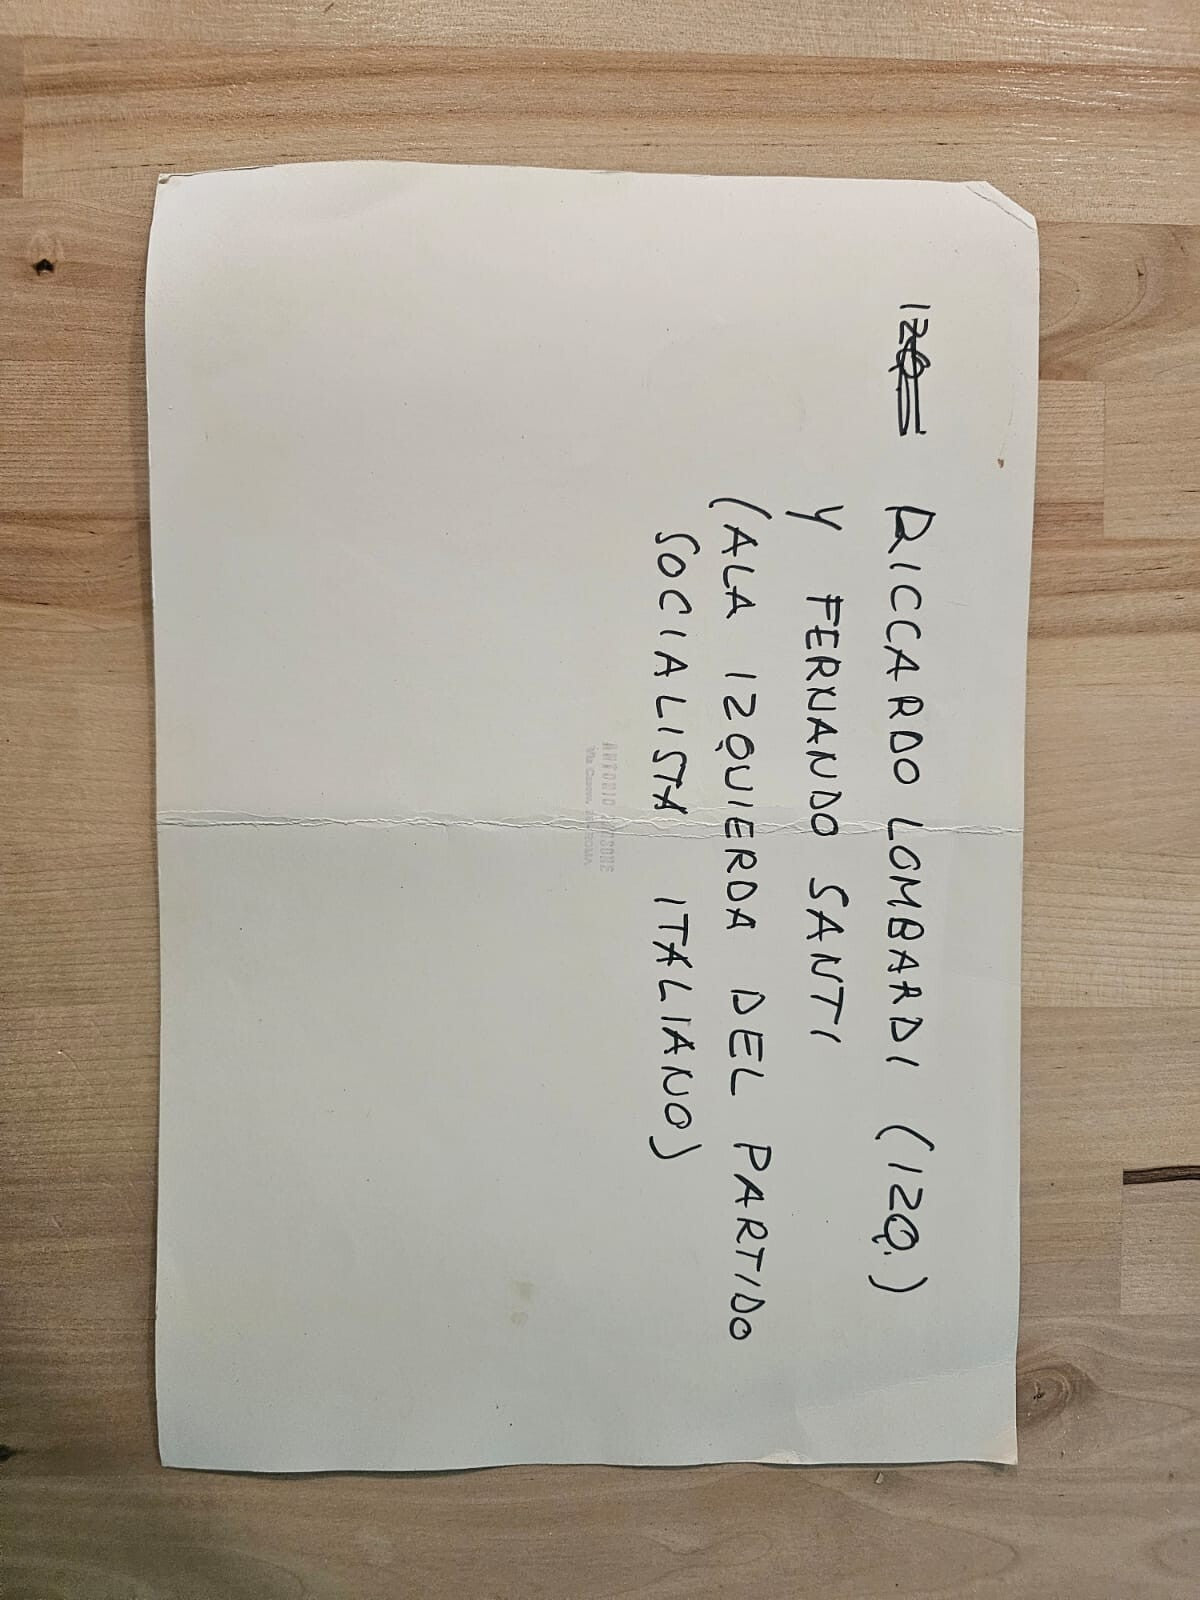 IZQ RICCARDO LOMBARDI (IZQ.)
Y FERNANDO SANTI
(ALA IZQUIERDA DEL PARTIDO
SOCIALISTA ITALIANO)
ANTONIO
Via ROMA